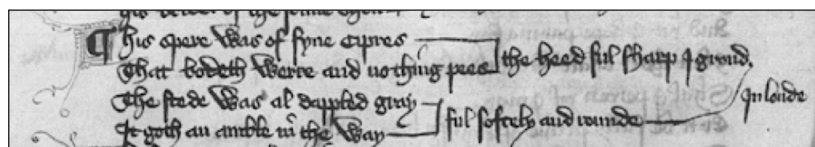 his spere was of fyne cipres
That bodeth werre and nothing pees the heed ful sharp I grond.
The stede was al dappled gray
It goth an amble in the way ful softely and rounde In londe